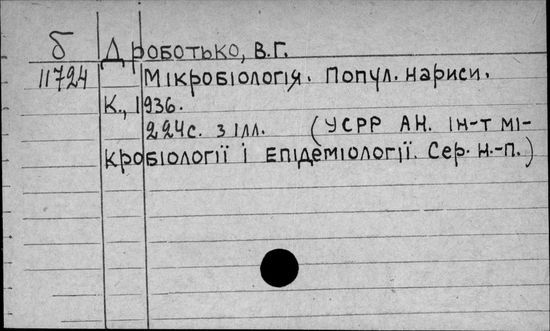 б Дроботько, В.Г.
11724 Мікробіологія. Попул. нариси.
К., 1936.
224с. з ілл. (УСРР АН. Ін-т мі-
кробіології і епідеміології. Сер. н.-п.)